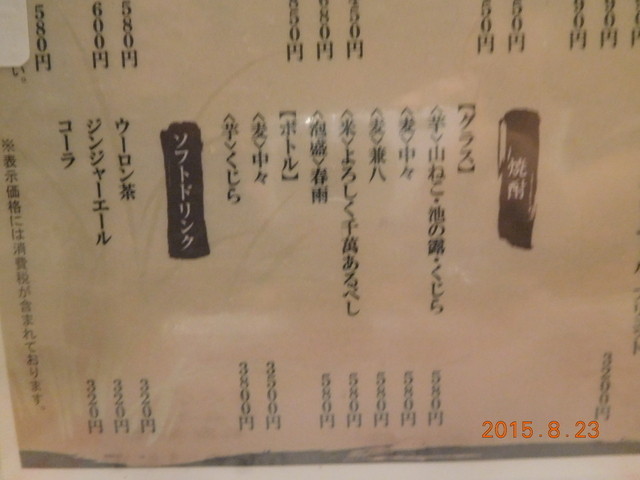 580円
600円
580円
850円
680円
250円
焼酎
【グラス】
〈芋〉山ねこ・池の露・くじら 580円
〈麦〉中々 580円
〈麦〉兼八 580円
〈米〉よろしく千萬あるべし 580円
〈泡盛〉春雨 580円
【ボトル】
〈麦〉中々 3500円
〈芋〉くじら 3800円
ソフトドリンク
ウーロン茶 320円
ジンジャーエール 320円
コーラ 320円
※表示価格には消費税が含まれております。
2015.8.23